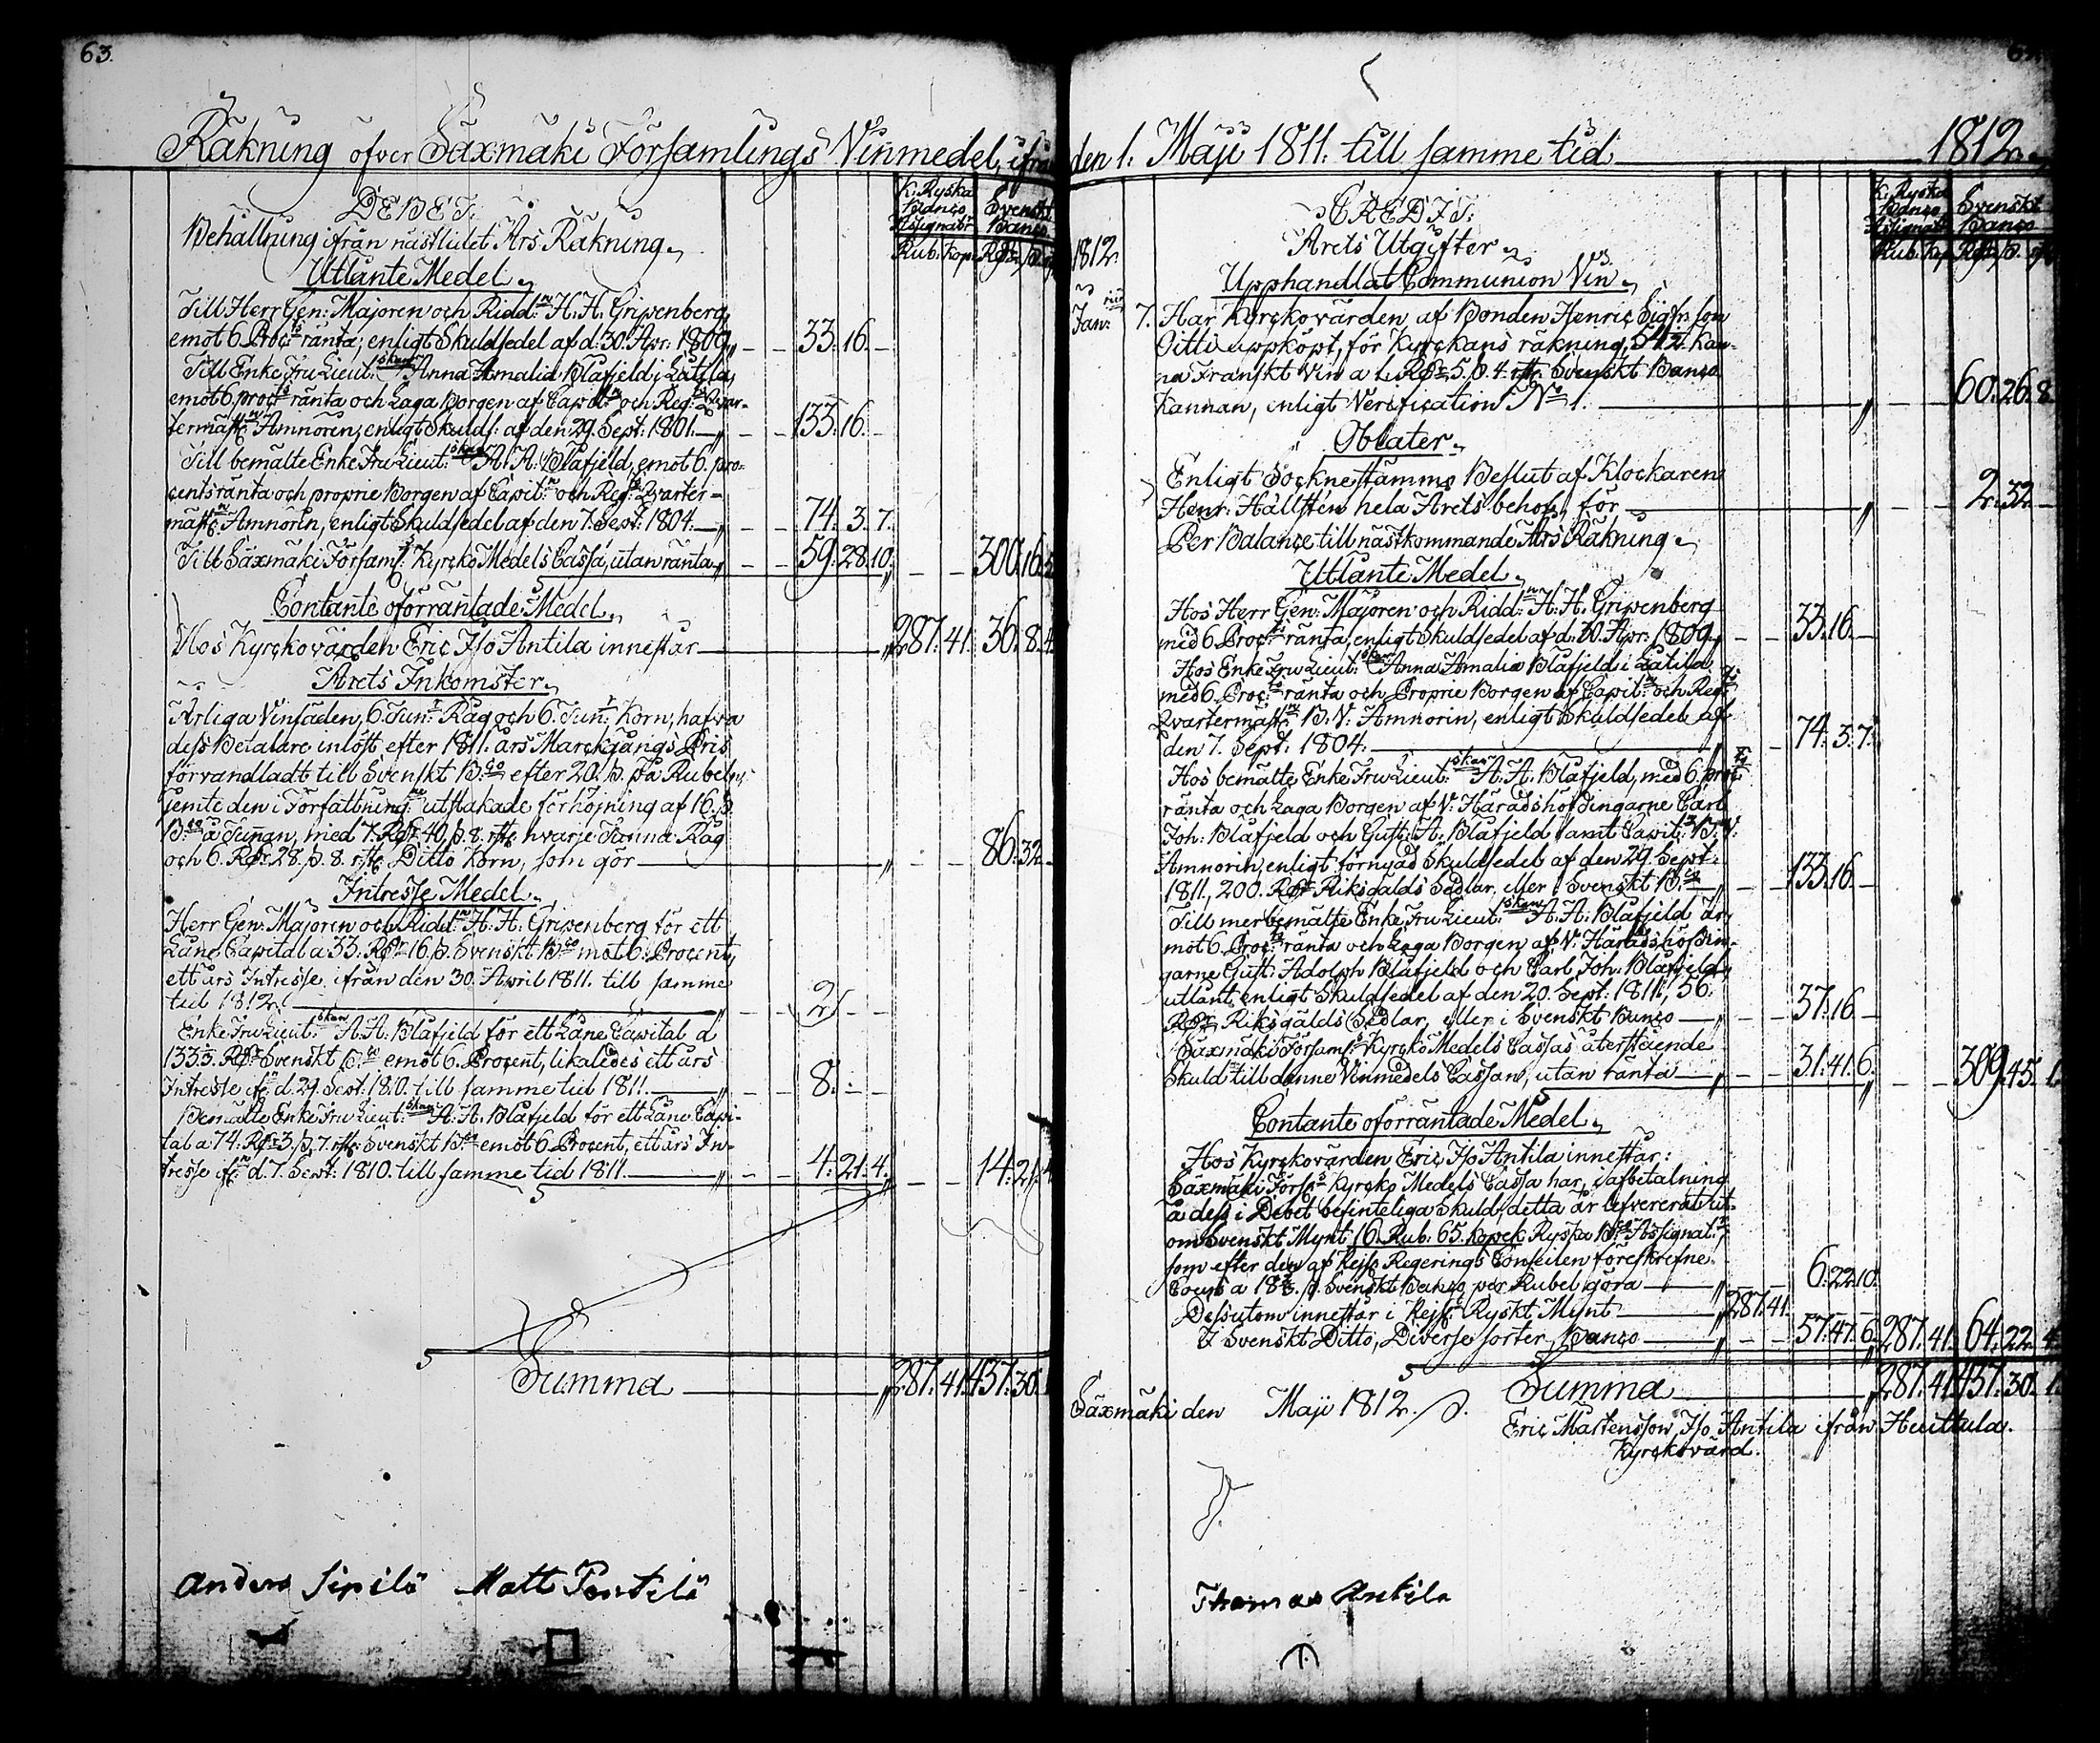 63.
Räkning öfver Säxmäki Församlings Vinmedel, ifrån
DEBET.
K: Ryska Banco Assignat:r
Svenskt Banco
Rub. Kop. Rdr. ß.
Behållning ifrån nästledet Års Räkning.
Utlånte Medel.
Till Herr Gen: Majoren och Ridd:n H. H. Gripenberg
emot 6 Proc:ts ränta, enligt Skuldsedel af d: 30. Apr: 1809. 33. 16. -
Till Enke Fru Lieut:skan Anna Amalia Blåfjeld i Latila
emot 6 proc:ts ränta och Laga Borgen af Capit:n och Reg:ts Qvar-
termäst:n Amnorin, enligt Skulds: af den 29. Sept: 1801. 133. 16. -
Till bemälte Enke Fru Lieut:skan A: A: Blåfjeld, emot 6. pro-
cents ränta och proprie Borgen af Capit:n och Reg:ts Qvarter-
mäst:n Amnorin, enligt Skuldsedel af den 7. Sept: 1804. 74. 3. 7.
Till Säxmäki Församl:s Kyrcko Medels Cassa, utan ränta 59. 28. 10. 300. 16.
Contante oförräntade Medel.
Hos Kyrckovärden Eric Jso Antila innestår 287. 41. 36. 8. 4.
Årets Inkomster.
Årliga Vinsäden, 6. Tun:r Råg och 6. Tun:r Korn, hafva
dess Betalare inlöst efter 1811. års Marckgångs Pris
förvandladt till Svenskt B:co efter 20. ß. på Rubeln,
jemte den i Författning:ne utstakade förhöjning af 16. ß.
B:co å Tunnan, med 7. Rdr. 40. ß. 8. rst. hvarje Tunna Råg
och 6. Rdr. 28. ß. 8. rst. Ditto Korn, som gör 86. 32. -
Intresse Medel.
Herr Gen: Majoren och Ridd:n H. H. Gripenberg för ett
Låne Capital a 33. Rdr. 16. ß. Svenskt B:co mot 6. Procent,
ett års Intresse ifrån den 30. April 1811. till samme
tid 1812. 2. - -
Enke Fru Lieut:skan A: A: Blåfjeld för ett Låne Capital a
133⅓. Rdr. Svenskt B:co emot 6. Procent, likaledes ett års
Intresse ifr:n d. 29. Sept: 1810. till samme tid 1811. 8. - -
Bemälte Enke Fru Lieut:skan A: A: Blåfjeld för ett Låne Capi-
tal a 74. Rdr. 3. ß. 7. rst. Svenskt B:co emot 6 Procent, ett års In-
tresse ifr:n d. 7. Sept: 1810. till samme tid 1811. 4. 21. 4. 14. 21.
Summa 287. 41. 437. 30.
Anders Sipilä Matt Pentilä
den 1. Maji 1811. till samme tid 1812.
CREDIT.
K: Ryska Banco Assignat:
Svenskt Banco
Rub. Kop. Rdr. ß.
1812.
Årets Utgifter.
Upphandlat Communion Vin.
Jan:rii 7. Har Kyrckovärden af Bonden Henric Sigfr:son
Oitti uppköpt, för Kyrckans räkning, 54½ kan-
na Franskt Vin a 1. Rdr. 5. ß. 4. rst. Svenskt Banco
Kannan, enligt Verification N:o 1. 60. 26. 8.
Oblater.
Enligt Sockne stämmo Beslut af Klockaren
Henr: Hällstén hela Årets behof, för 2. 32. -
Per Balance till nästkommande Års Räkning.
Utlånte Medel.
Hos Herr Gen: Majoren och Ridd:n H: H. Gripenberg
med 6. Proc:ts ränta, enligt Skuldsedel af d: 30. Apr: 1809. 33. 16. -
Hos Enke Fru Lieut:skan Anna Amalia Blåfjeld i Latila
med 6. Proc:ts ränta och Proprie Borgen af Capit:n och Reg:ts
Qvartermäst:n B: V: Amnorin, enligt Skuldsedel af
den 7. Sept: 1804. 74. 3. 7.
Hos bemälte Enke Fru Lieut:skan A: A: Blåfjeld, med 6. proc:ts
ränta och Laga Borgen af V: Häradshöfdingarne Carl
Joh: Blåfjeld och Gust: A: Blåfjeld samt Capit:n B: V:
Amnorin, enligt förnyad Skuldsedel af den 29. Sept:
1811, 200. Rdr. Riksgälds Sedlar, eller i Svenskt B:co 133. 16. -
Till merbemälte Enke Fru Lieut:skan A: A: Blåfjeld är,
mot 6. Proc:ts ränta och Laga Borgen af V: Häradshöfdin-
garne Gust: Adolph Blåfjeld och Carl Joh: Blåfjeld
utlånt, enligt Skuldsedel af den 20. Sept: 1811, 56.
Rdr. Riksgälds Sedlar, eller i Svenskt Banco 37. 16. -
Säxmäki Församl:s Kyrcko Medels Cassas återstående
Skuld till denne Vinmedels Cassan, utan ränta 31. 41. 6. 309. 45. 1.
Contante oförräntade Medel.
Hos Kyrckovärden Eric Jso Antila innestår:
Säxmäki Förs:s Kyrcko Medels Cassa har, i afbetalning
å dess i Debet befinteliga Skuld, detta år lefvererat ut-
om Svenskt Mynt 16. Rub: 65. kopek Ryska B:co Assignat:r,
som efter den af Kejs: Regerings Conseilen föreskrefne
Cours a 18 ß. Svenskt Banco per Rubel göra 6. 22. 10.
Dessutom innestår i Kejs: Ryskt Mynt 287. 41.
I Svenskt Ditto, Diverse sorter, Banco 57. 47. 6. 287. 41. 64. 22. 4.
Summa 287. 41. 437. 30. 1.
Säxmäki den Maji 1812.
Eric Mårtensson Jso Antila ifrån Huittula.
Kyrckovärd.
Thomas Antila